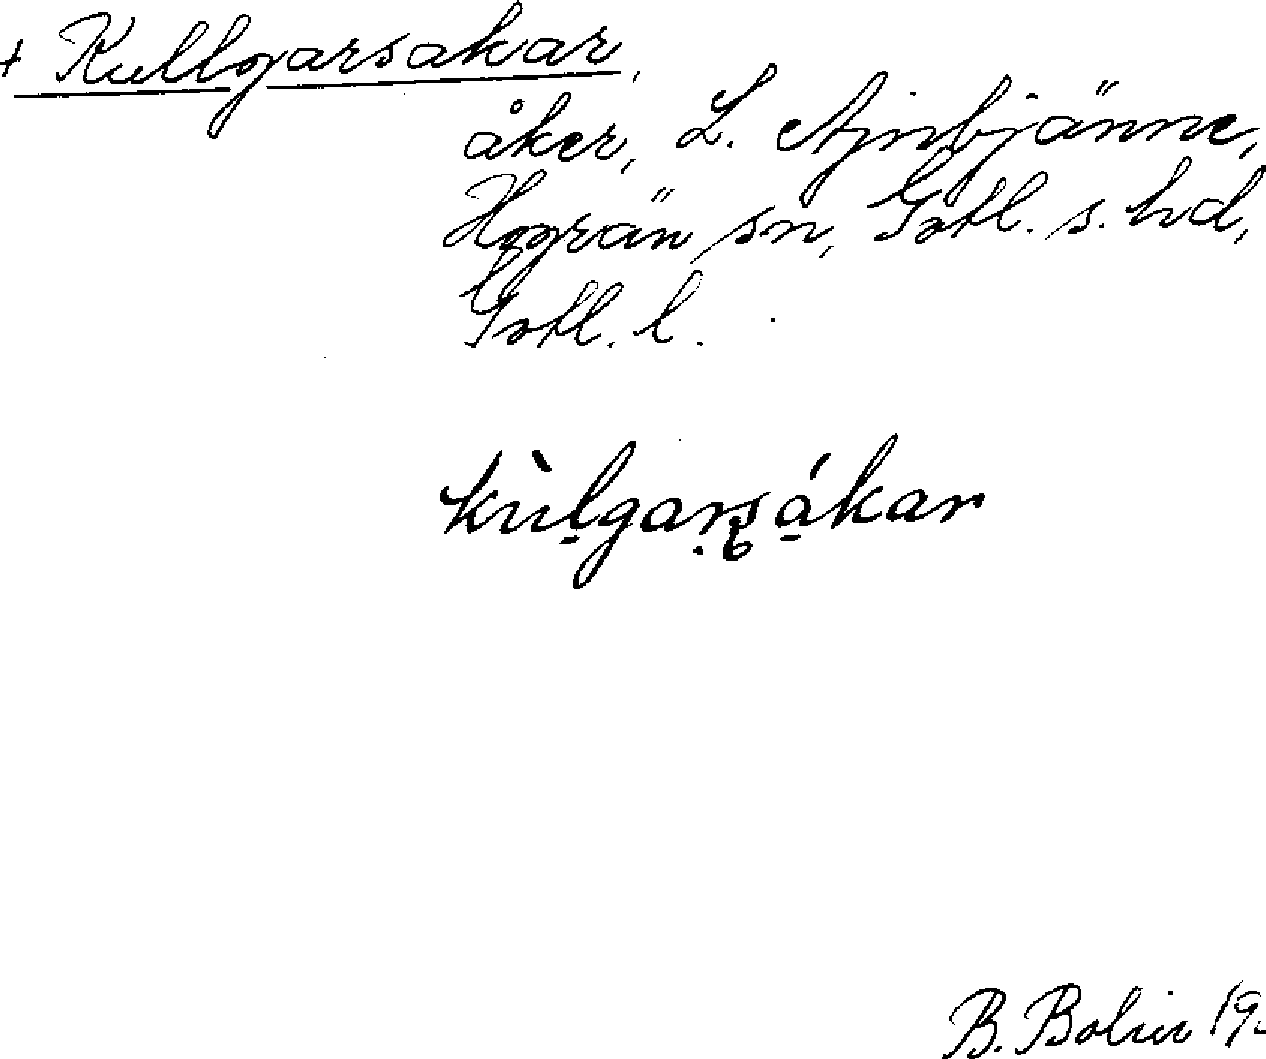 + Kullgarsakar,
åker, L. Ajnbjänne,
Hogrän sn, Gotl. s. hd,
Gotl. l.
kùlgarsákar
B. Bolin 19.